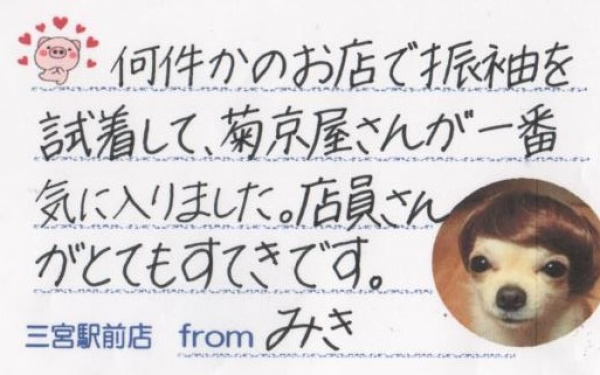 何件かのお店で振袖を
試着して、菊京屋さんが一番
気に入りました。店員さん
がとてもすてきです。
三宮駅前店 from みき